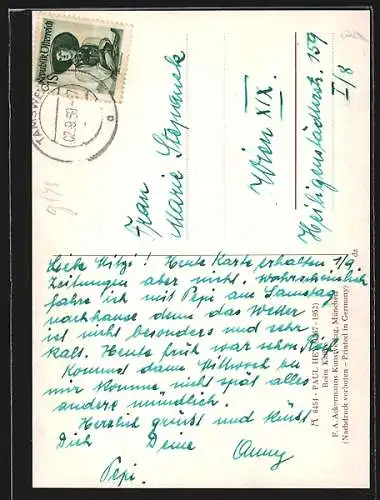 Republik Österreich
1 S
TAMSWEG
02.9.58
a
g 173
Frau
Marie Stepanek
Wien XIX.
Heiligenstädterstr. 159
I/8
Liebe Mitzi! Heute Karte erhalten 1/9
Zeitungen aber nicht. Wahrscheinlich
fahre ich mit Pepi am Samstag
nachhause denn das Wetter
ist nicht besonders und sehr
kalt. Heute früh war schon Reif.
Komme dann Mittwoch zu
mir komme nicht spät alles
andere mündlich.
Herzlich grüsst und küsst
Dich Deine Anny
Pepi.
M 6454 - PAUL HEY (1867-1952)
Beim
F. A. Ackermanns Kunstverlag, München
(Nachdruck verboten - Printed in Germany)